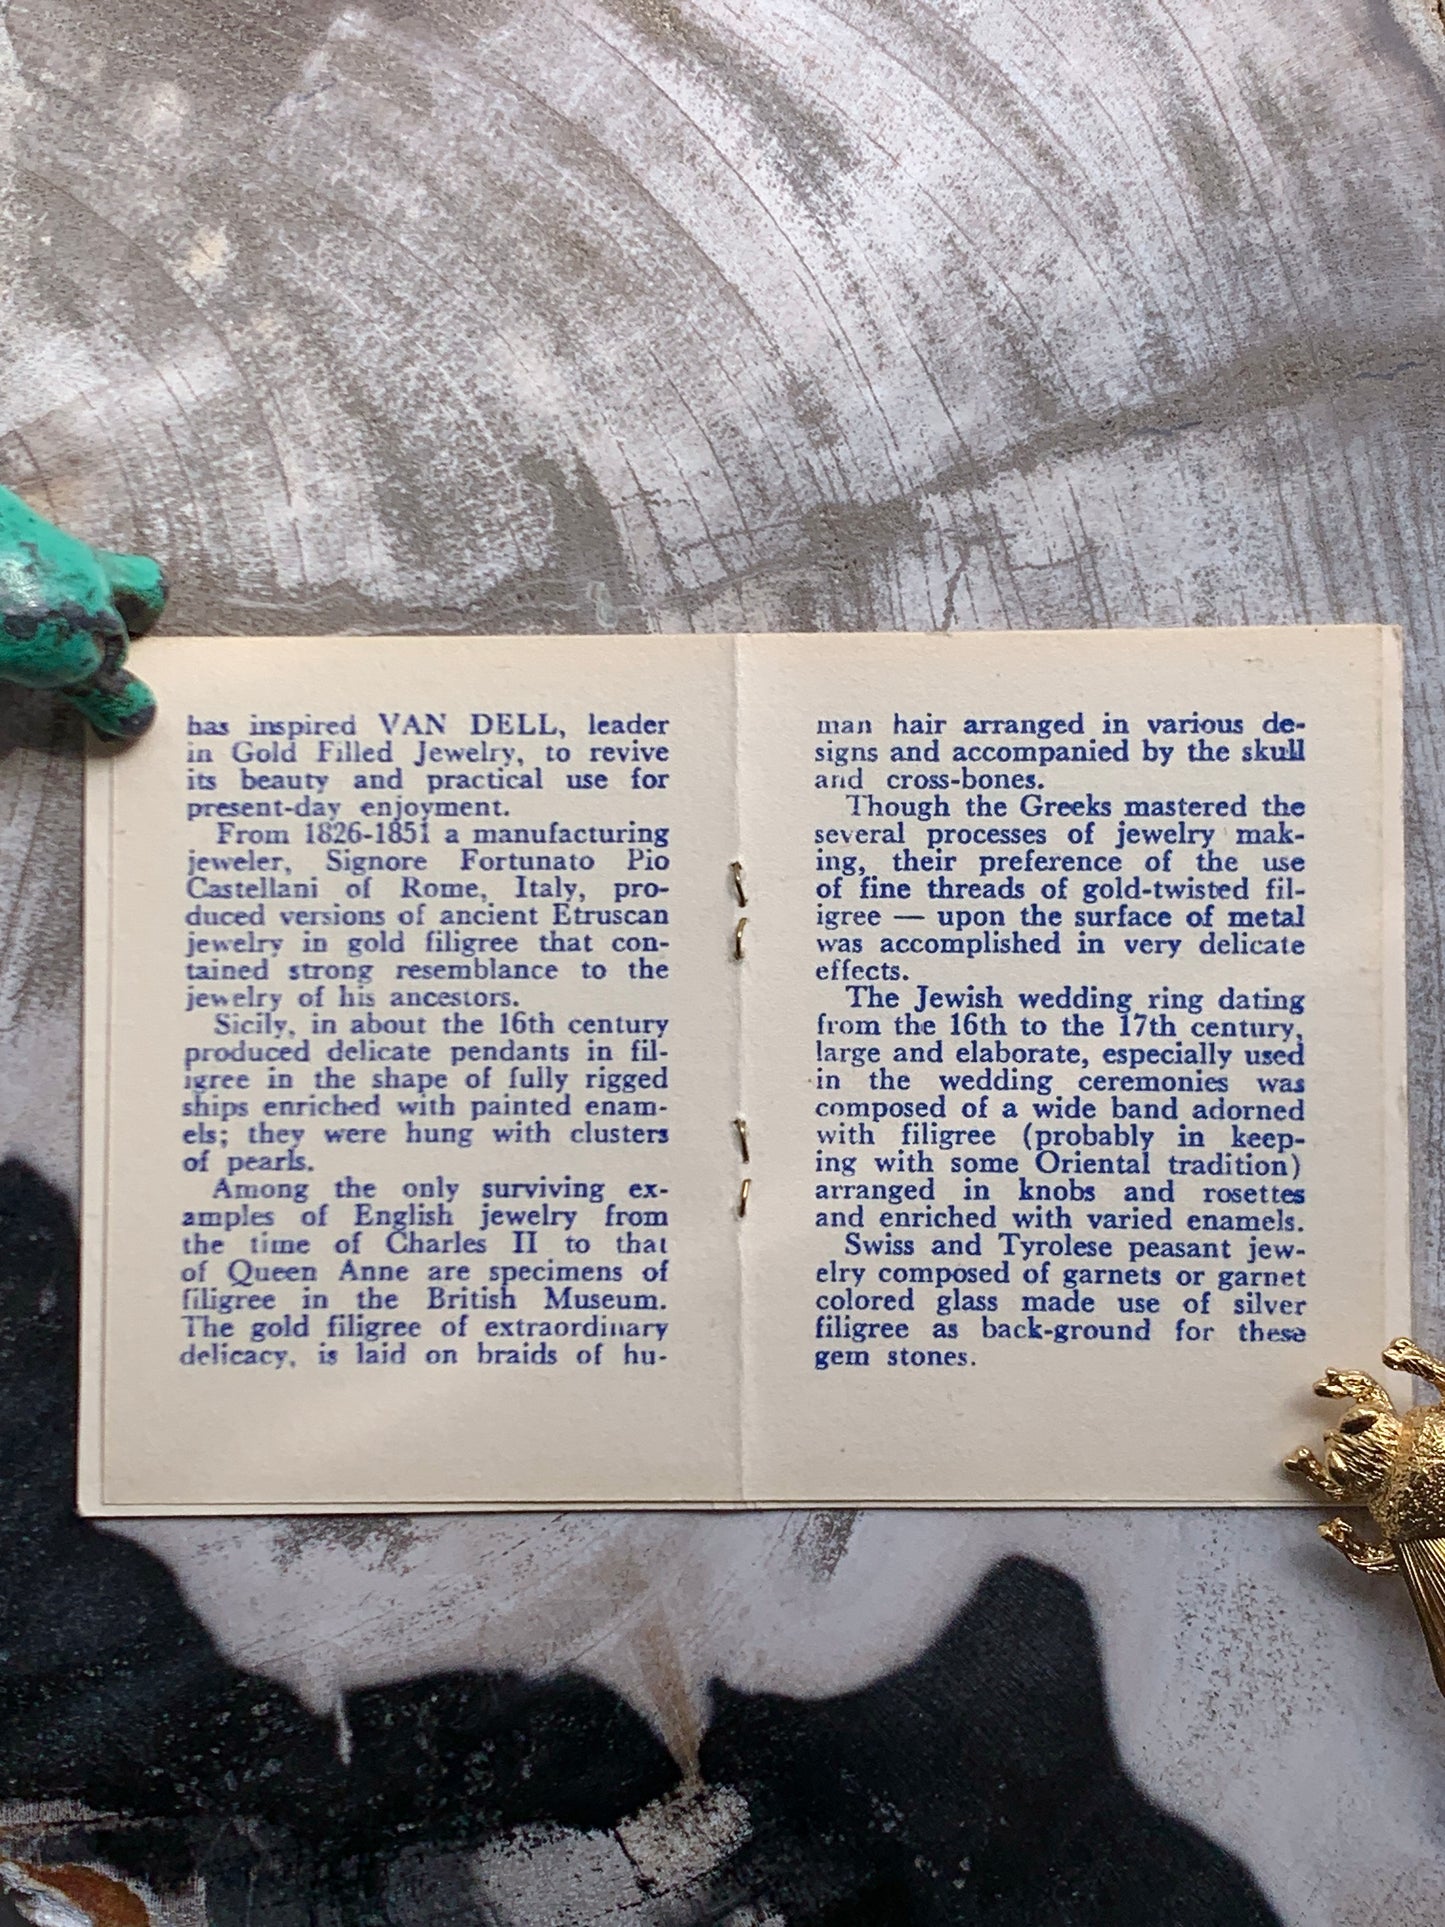 has inspired VAN DELL, leader
in Gold Filled Jewelry, to revive
its beauty and practical use for
present-day enjoyment.
From 1826-1851 a manufacturing
jeweler, Signore Fortunato Pio
Castellani of Rome, Italy, pro-
duced versions of ancient Etruscan
jewelry in gold filigree that con-
tained strong resemblance to the
jewelry of his ancestors.
Sicily, in about the 16th century
produced delicate pendants in fil-
igree in the shape of fully rigged
ships enriched with painted enam-
els; they were hung with clusters
of pearls.
Among the only surviving ex-
amples of English jewelry from
the time of Charles II to that
of Queen Anne are specimens of
filigree in the British Museum.
The gold filigree of extraordinary
delicacy, is laid on braids of hu-
man hair arranged in various de-
signs and accompanied by the skull
and cross-bones.
Though the Greeks mastered the
several processes of jewelry mak-
ing, their preference of the use
of fine threads of gold-twisted fil-
igree — upon the surface of metal
was accomplished in very delicate
effects.
The Jewish wedding ring dating
from the 16th to the 17th century,
large and elaborate, especially used
in the wedding ceremonies was
composed of a wide band adorned
with filigree (probably in keep-
ing with some Oriental tradition)
arranged in knobs and rosettes
and enriched with varied enamels.
Swiss and Tyrolese peasant jew-
elry composed of garnets or garnet
colored glass made use of silver
filigree as back-ground for these
gem stones.